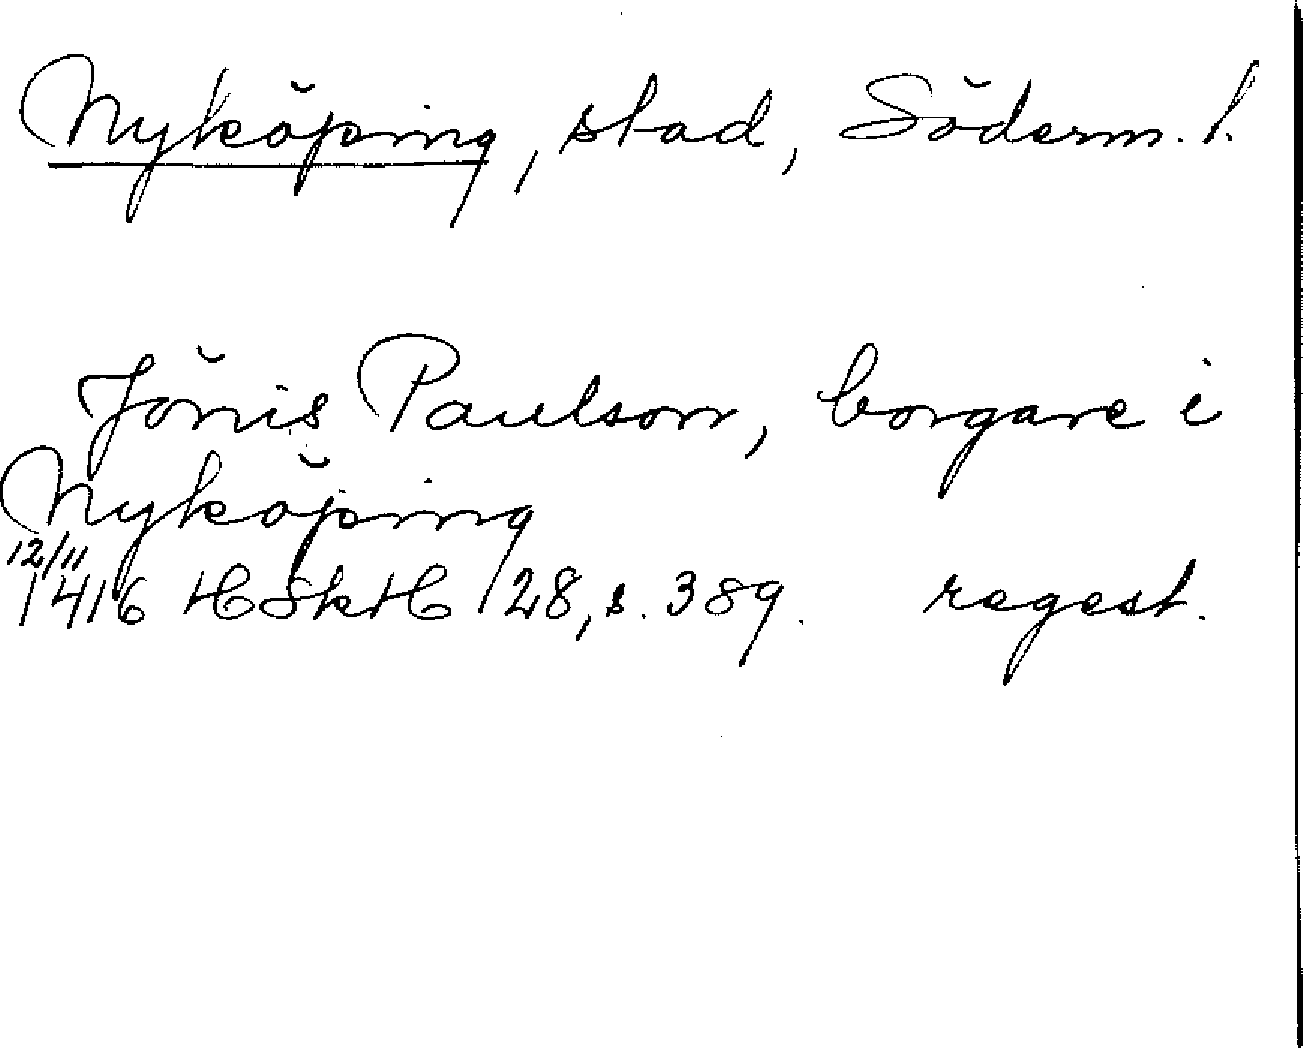 Nyköping, stad, Söderm. l.
Jönis Paulson, borgare i
Nyköping
12/11
1416 HSkH 28, s. 389. regest.